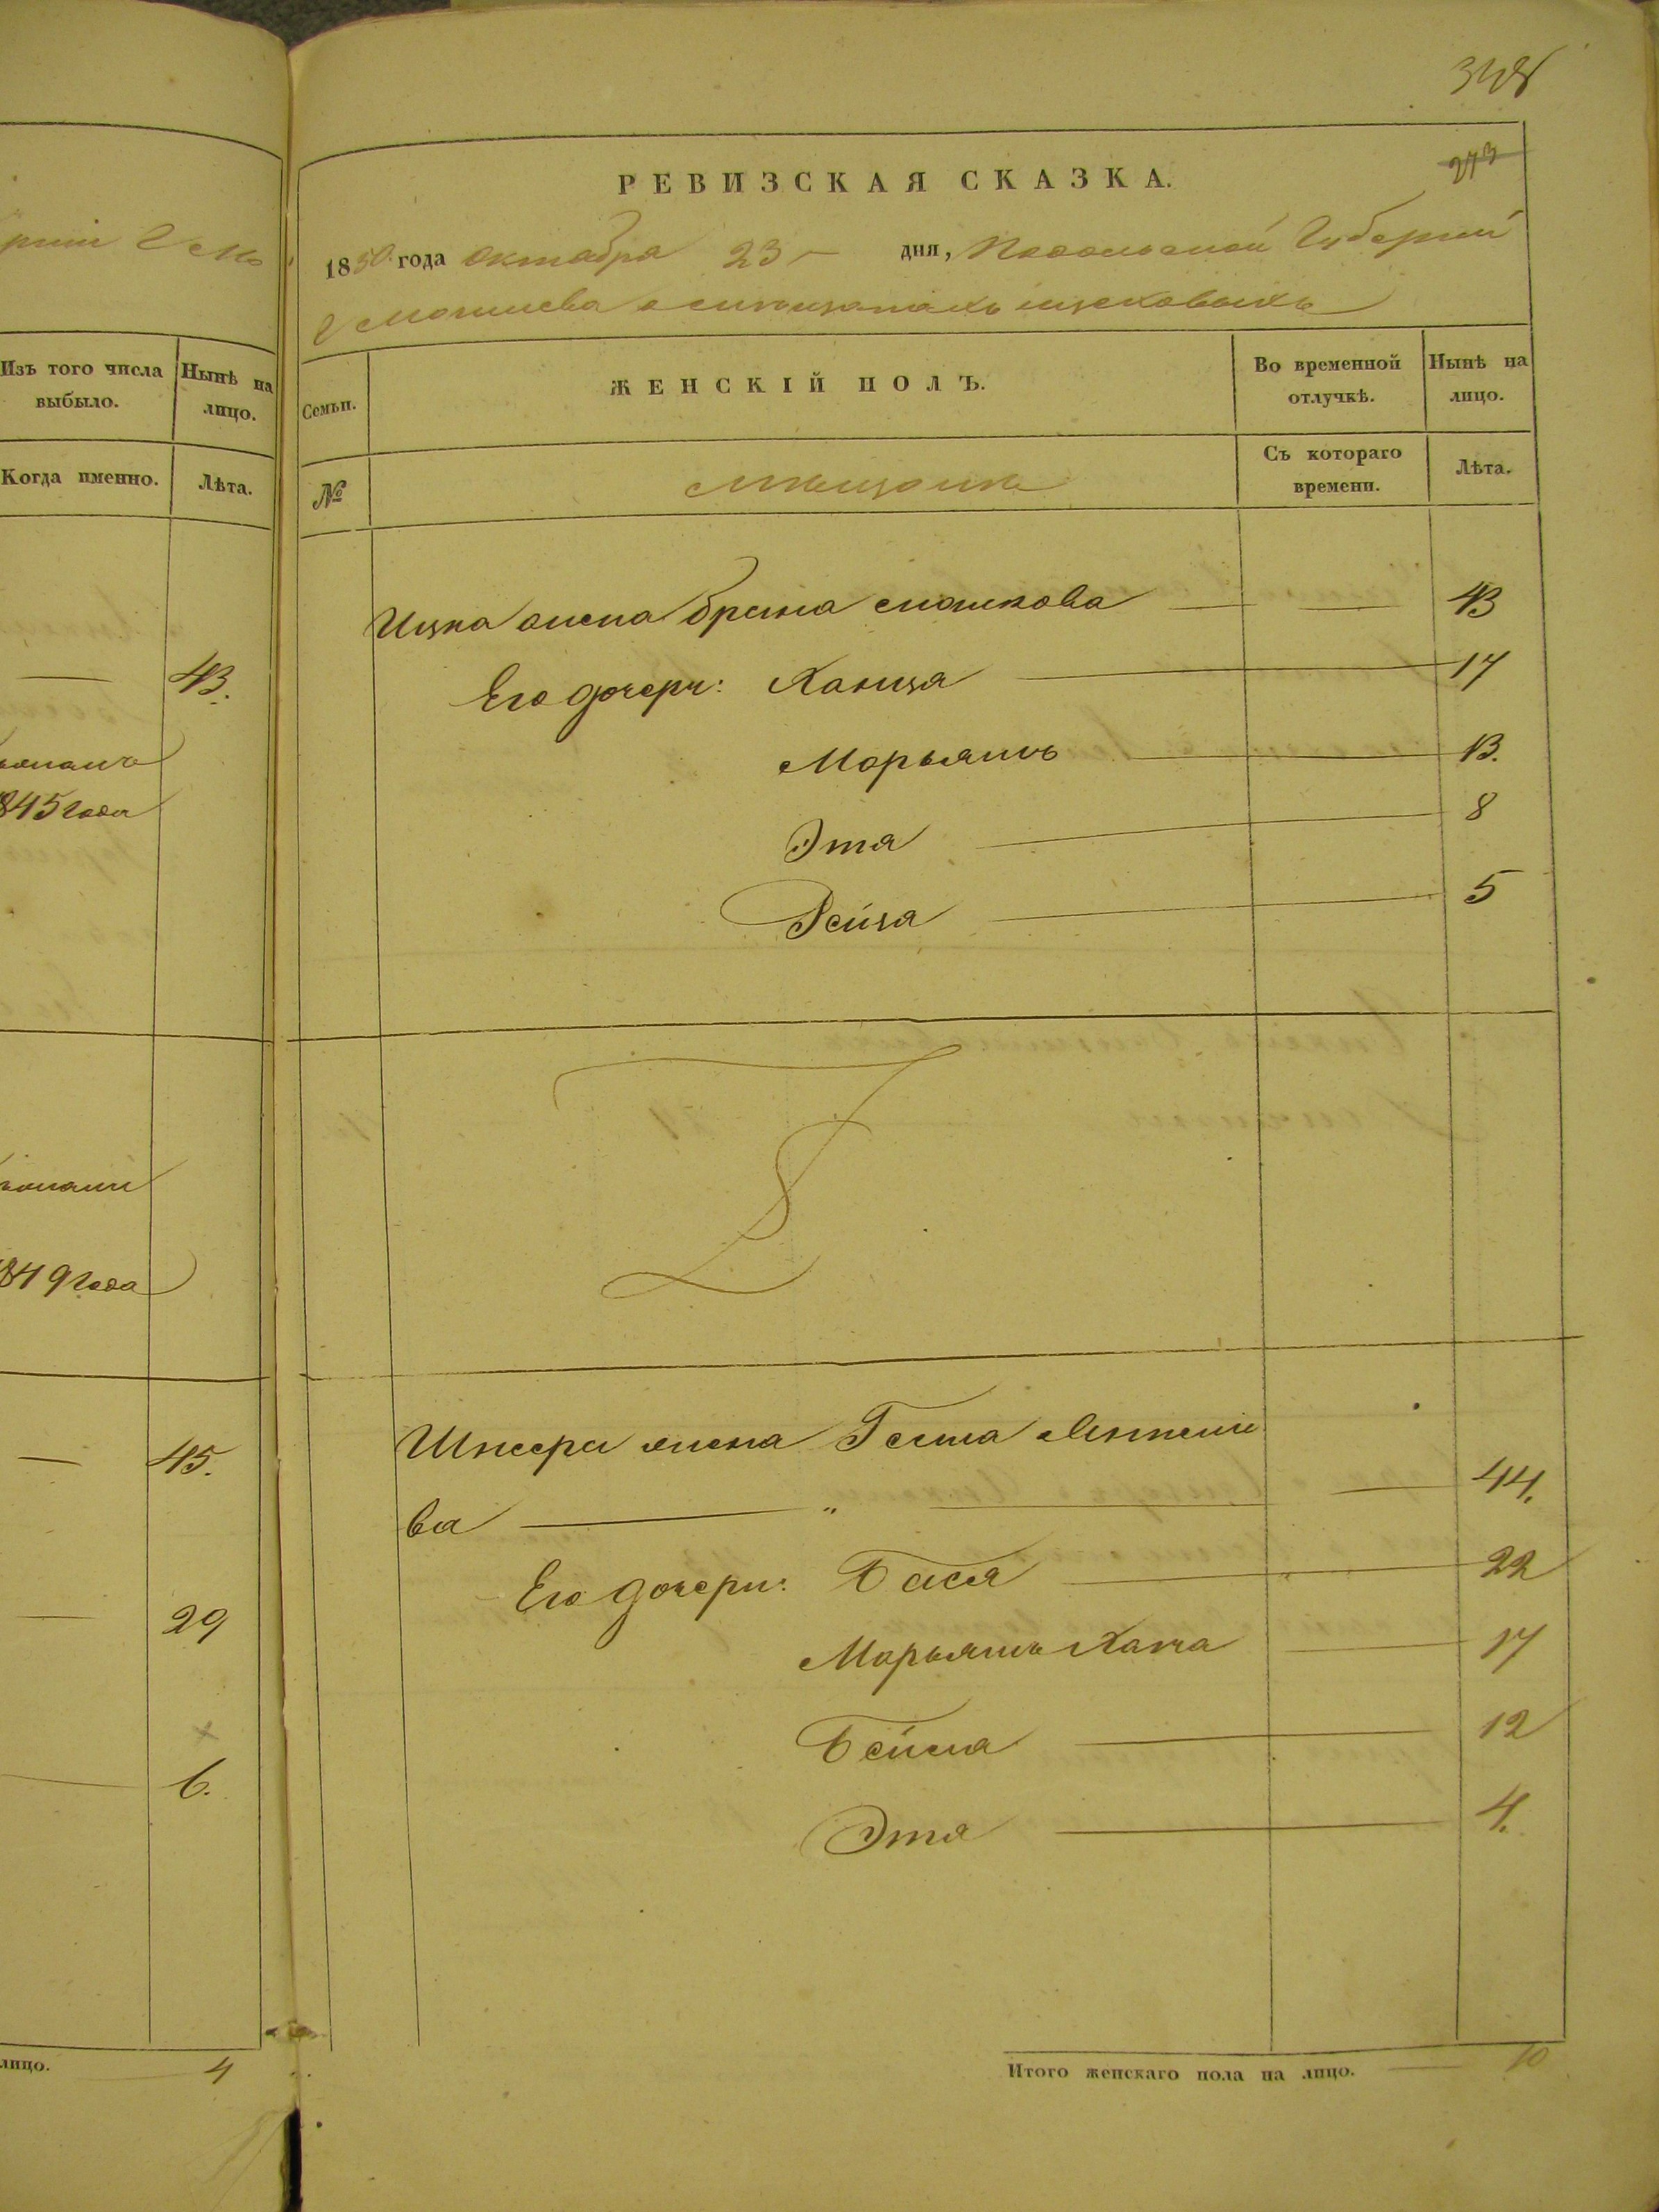 348
273
РЕВИЗСКАЯ СКАЗКА.
1850 года октабра 23 дня, Подольской Губернии
г Могилева о мѣщанахъ
Изъ того числа выбыло.
Нынѣ на лицо.
Семьи.
ЖЕНСКІЙ ПОЛЪ.
Во временной отлучкѣ.
Нынѣ на лицо.
Когда именно.
Лѣта.
№
мѣщане
Съ котораго времени.
Лѣта.
Ицка жена Брана 43
43.
Его дочери: Ханця 17
Марьямъ 13.
845 года
Эта 8
Рейзя 5
849 года
Шнеера жена Гелма
ва " 44.
45.
Его дочери: Бася 22
29
Марьямъ Хана 17
Бейла 12
6.
Эта 4.
лицо. 4
Итого женскаго пола на лицо. 10